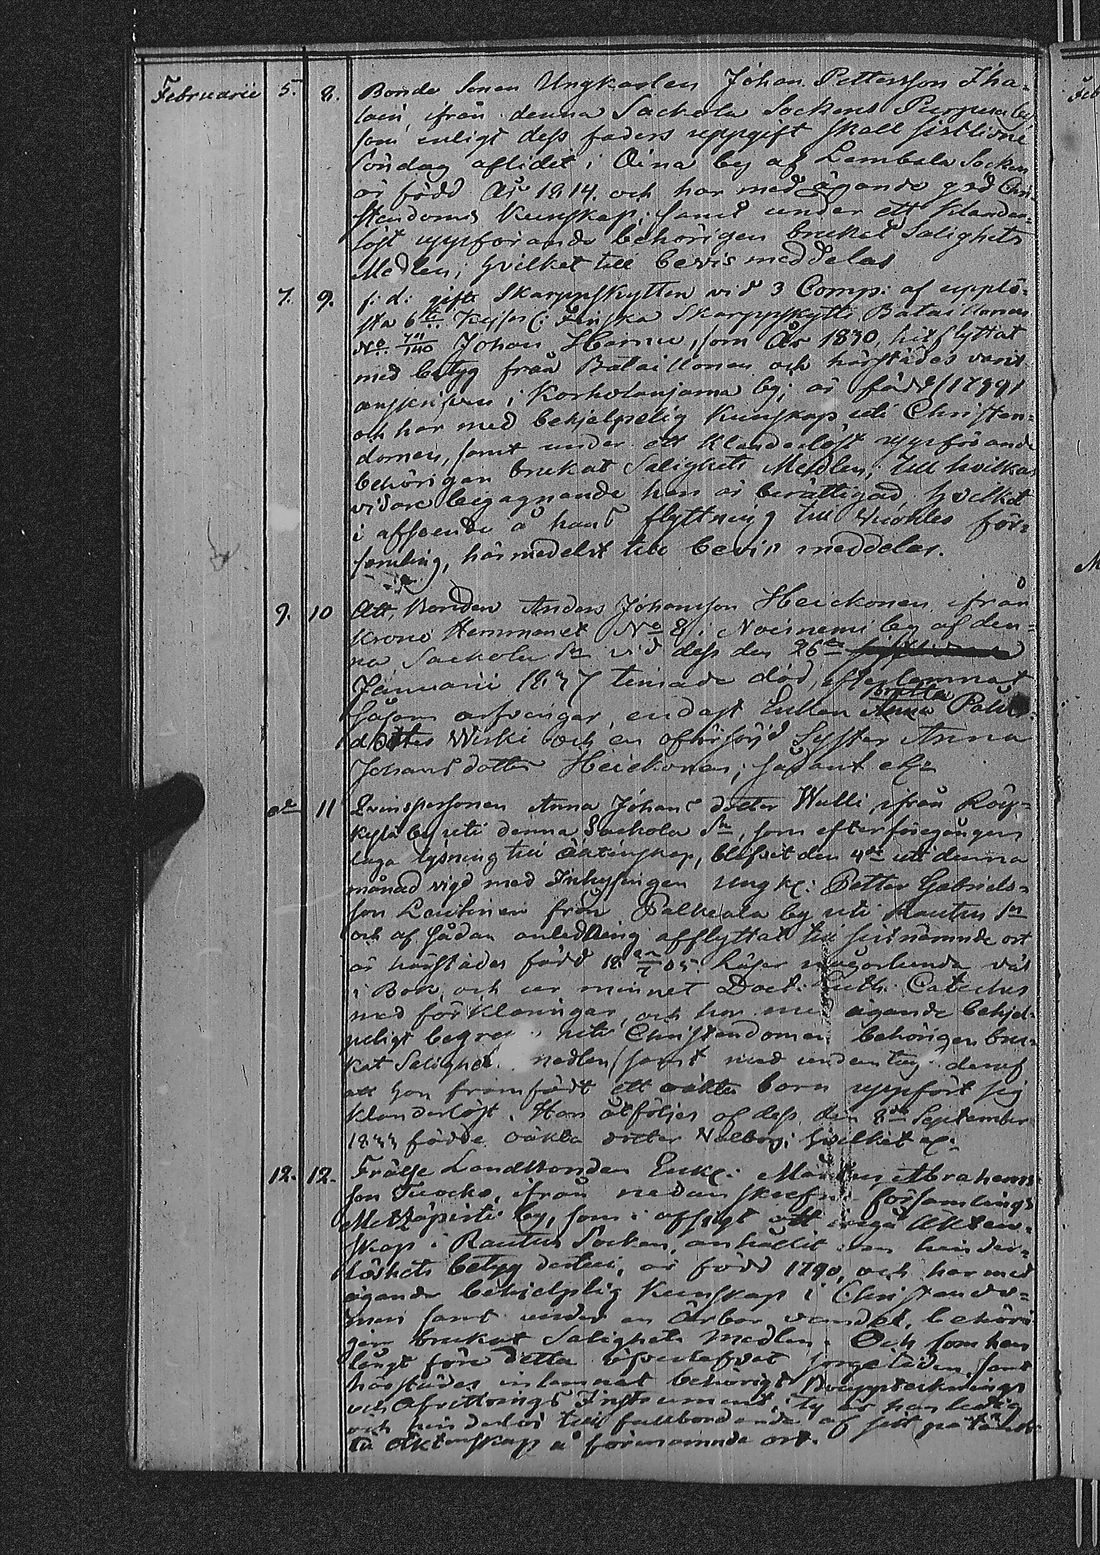 Februarii 5. 8. Bonde Sonen Ungkarlen Johan Pettersson Iha-
lain, ifrån denna Sackola Sockens Purpua by
som enligt dess faders uppgift skall sistlidne
Söndag aflidet i Oina by af Lembala Socken
är född År 1814. och har med ägande god Chri-
stendoms Kunskap; samt under ett klander-
löst uppförande behörigen brukat Salighets
Medlen; hvilket till bevis meddelas
7. 9. f: d: gifte Skarpskytten vid 3 Comp: af upplö-
sta 6te Kejserl: Finska Skarpskytte Bataillonen
No Johan Harme, som År 1830, hit flyttat
med betyg från Bataillonen och härstädes varit
anskrifven i Korholanjama by; är född 1799
och har med behjelpelig Kunskap uti Christen-
domen, samt under ett klanderlöst uppförande
behörigen brukat Salighets Medlen; till hvilkas
vidare begagnande han är berättigad. hvilket
i afseende å hans flyttning till för-
samling, härmedelst till bevis meddelas.
9. 10 Att, Bonden Anders Johansson Heickonen ifrån
Krono Hemmanet No 8 i Noisnemi by af den-
na Sackola Sn vid dess den 26te
Januarii 1837 timade död, efterlemnat
såsom arfvingar, endast Enkan Anna Påls
dotter Wiski och en oförsörjd Syster Anna
Johans dotter Heickonen; sådant etc
d:o 11 Qvinspersonen Anna Johans dotter Wulli ifrån Röy-
kylä by uti denna Sackola Sn, som efter föregången
laga lysning till äktenskap, blifvit den 4de uti denna
månad vigd med Inhysingen Ungk: Petter Gabriels-
son Lautinen från Palkeala by uti Rautus Sn
och af sådan anledning afflyttat till sistnämnde ort
är härstädes född 18 05. Läser någorlunda väl
i Bok, och ur minnet Doct: Luth: Cateches
med förklaringar, och har med ägande behjel-
peligt begrep uti Christendomen behörigen bru-
kat Salighets medlen, samt med undantag deraf
att hon framfödt ett oäkta barn uppfört sig
klanderlöst. Hon åtföljes af dess den 8de September
1833 födde oäkta dotter Walborg; hvilket etc:
12. 12. Frälse Landbonden Enkl: Abrahams-
son Tuocko, ifrån nedanskrefne församlings
Metzäpirti by, som i afsigt att ingå äkten-
skap i Rautus Socken, anhållit om hinder-
löshets betyg dertill, är född 1790, och har med
ägande behjelplig Kunskap i Christendo-
men samt under en ärbar vandel, behöri-
gen brukat Salighets medlen. Och som han
långt före detta öfverlefvat sorgetiden, samt
härstädes inlemnat behörigt Bouppteknings
och Afvittrings Instrument; ty är han ledig
och hinderlös till fullbordande af sitt
te äktenskap å förenämnde ort.